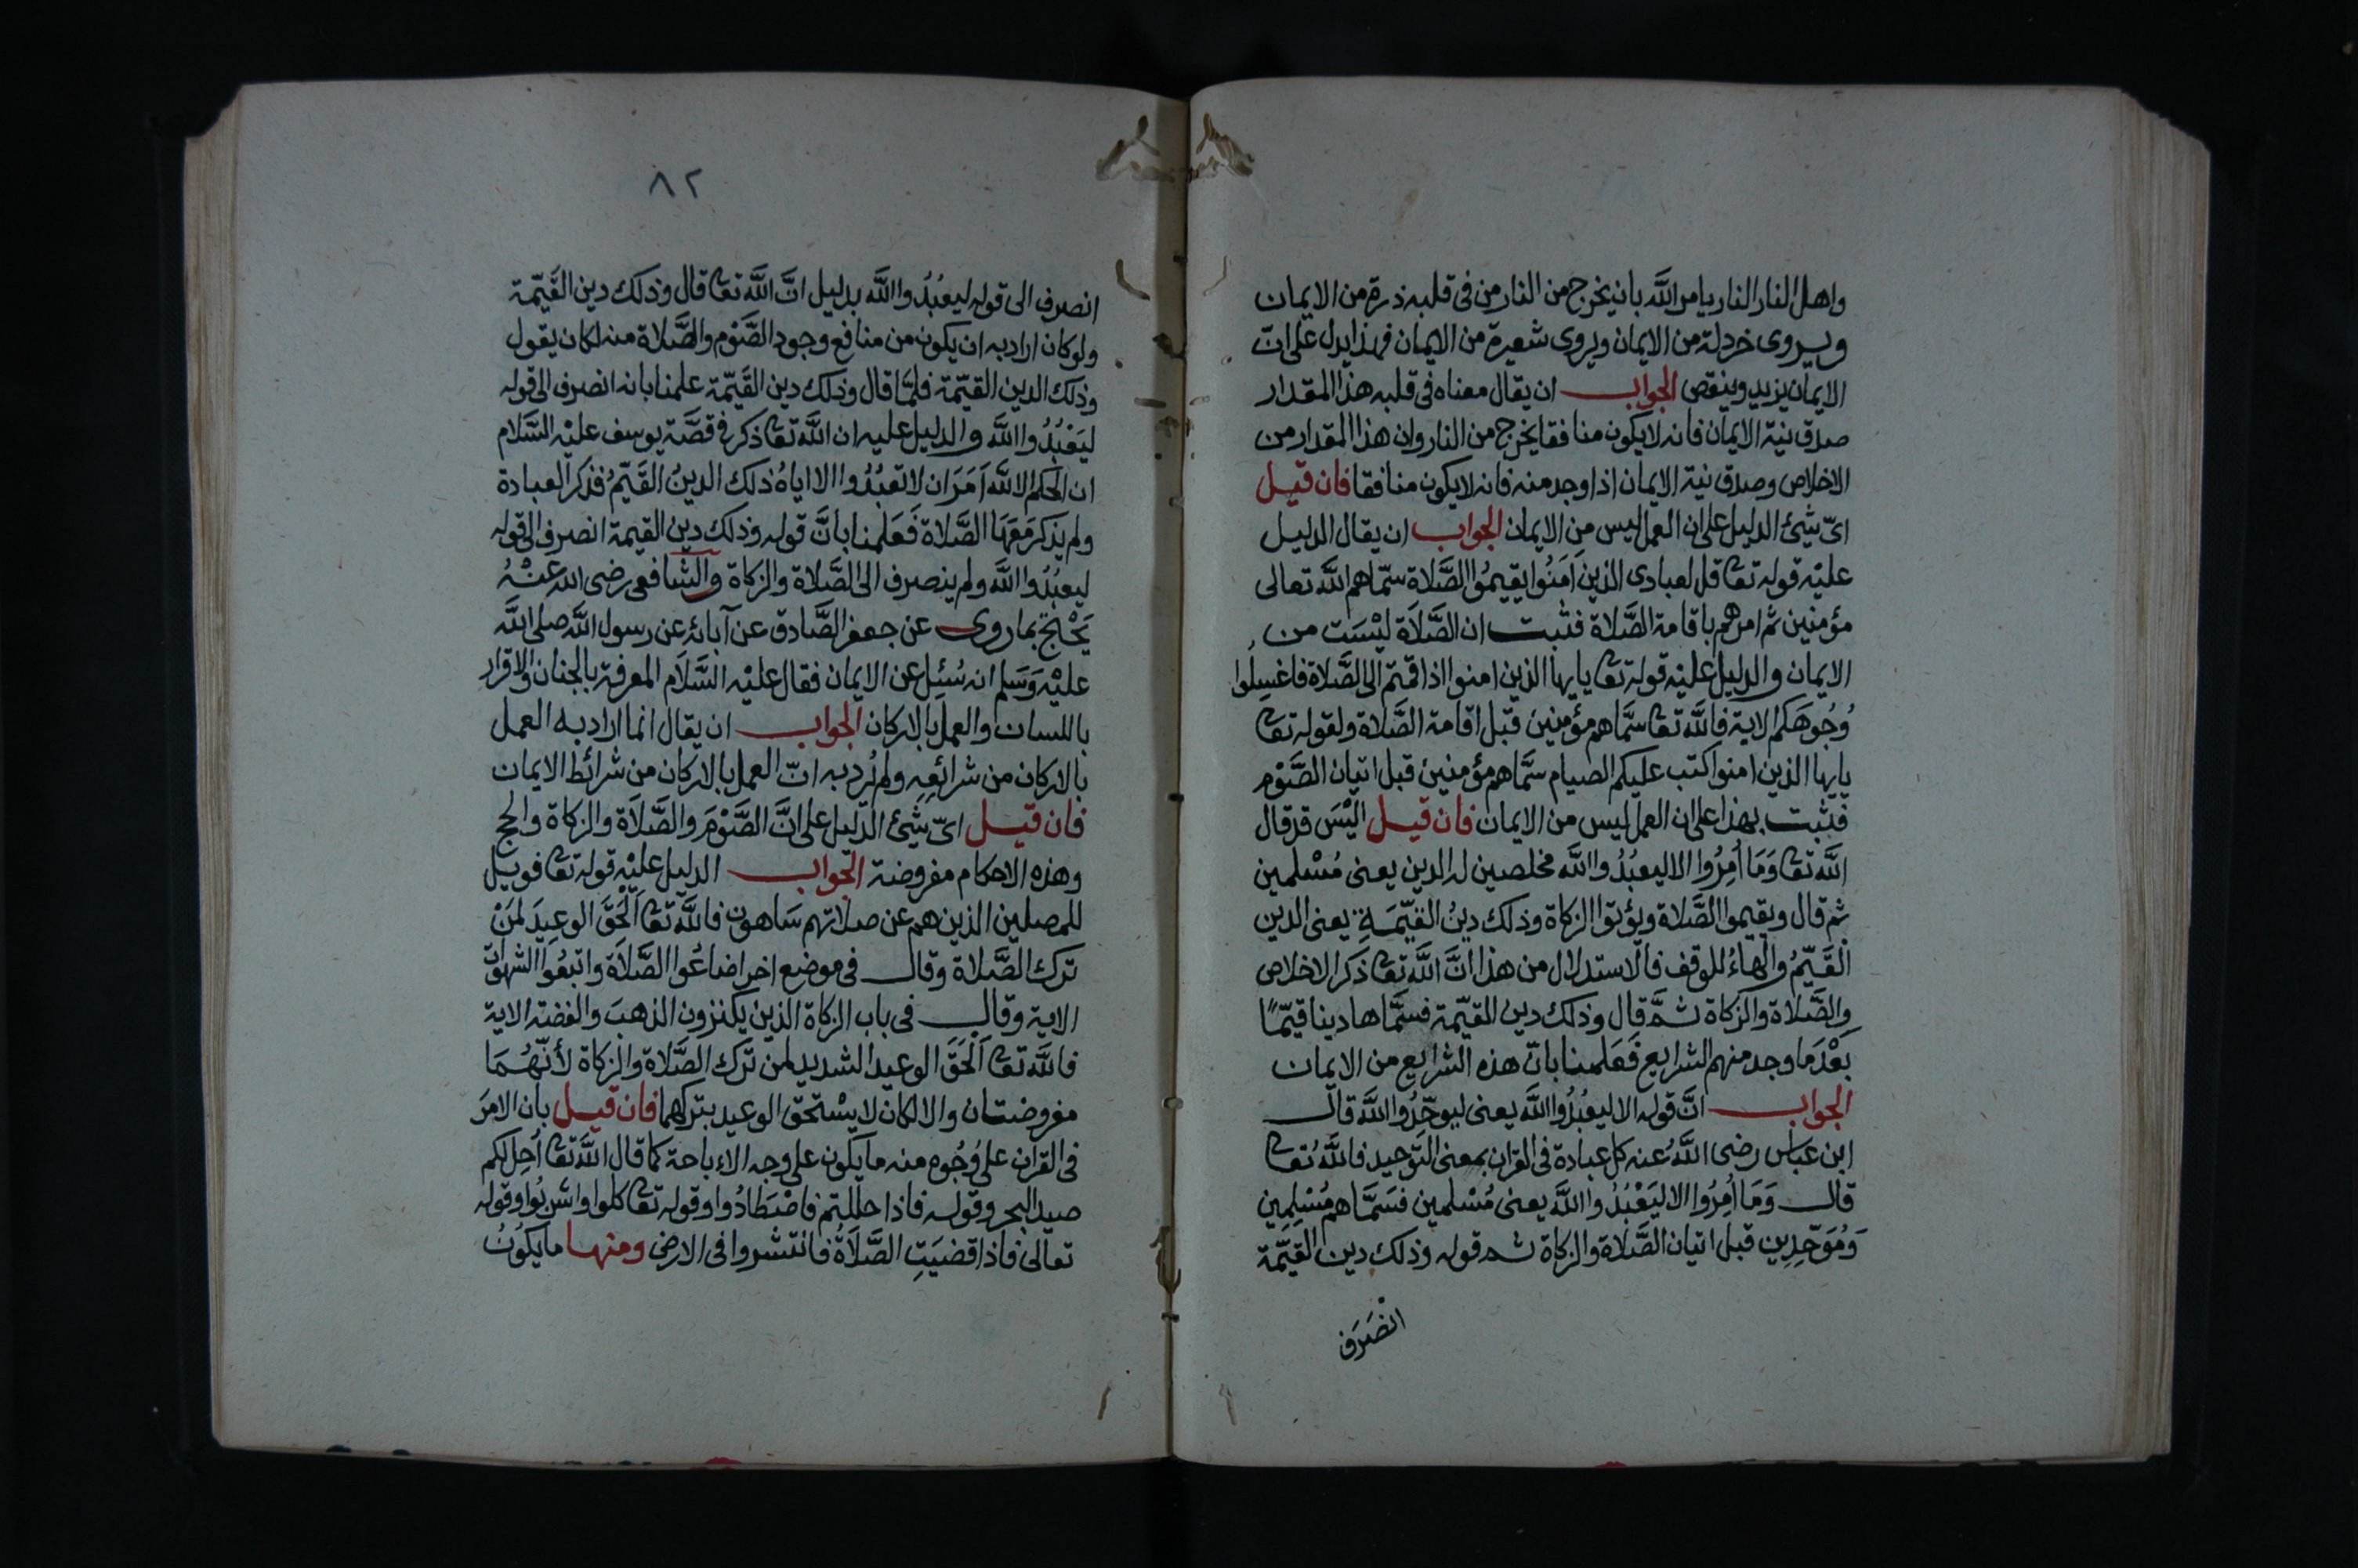 واهل النار النار يامر الله بان يخرج من النار من فى قلبه ذرة من الايمان
ويروى خردلة من الايمان ويروى شعيرة من الايمان فهذا يدل على انّ
الايمان يزيد وينقص الجواب ان يقال معناه فى قلبه هذا المقدار
صدق نية الايمان فانه لا يكون منافقا يخرج من النار وان هذا المقدار من
الاخلاص وصدق نية الايمان اذا وجد منه فانه لا يكون منافقا فان قيل
اىّ شيئ الدليل على ان العمل ليس من الايمان الجواب ان يقال الدليل
عليْه قوله تعا قل لعبادى الذين اَمَنُوا يقيمُوا الصَّلاة سمّاهم اللَّه تعالى
مؤمنين ثم امرهم باقامة الصَّلاة فثبت ان الصَّلاَة ليْسَت من
الايمان والدليل عليْه قوله تعا يايها الذين امنوا اذا قمتم الى الصَّلاة فاغسِلُوا
وُجُوهَكم الاية فاللَّه تعا سمَّاهم مؤمنين قبل اقامة الصَّلاة ولقوله تعا
يايها الذين امنوا كتب عليكم الصيام سمَّاهم مؤمنين قبل اتيان الصَّوْم
فثبت بهذا على ان العمل ليس من الايمان فان قيل اليْسَ قد قال
اللَّه تعا وَمَا اُمِرُوا الا ليعبُدُوا اللَّه مخلصين له الدين يعنى مُسْلمين
ثم قال ويقيموا الصَّلاة ويؤتوا الزكاة وذلك دينُ القيّمَةِ يعنى الدين
القَيّمُ والهاءُ للوقف فالاستدلال من هذا انَّ اللَّه تعا ذكر الاخلاص
والصَّلاة والزكاة ثم قال وذلك دين القيّمة فسمَّاها دينا قيّمًا
بعْدَ ما وجد منهم الشرايع فَعَلمنا بانّ هذه الشرايع من الايمان
الجواب انَّ قوله الا ليعْبُدُوا اللَّه يعنى ليوحّدُوا اللَّه قال
ابن عباس رضى اللَّهُ عنه كل عبادة فى القران بمعنى التوحيد فاللَّهُ تعا
قال وَمَا اُمِرُوا الا ليَعْبُدُوا اللَّه يعنى مُسْلمين فسَمَّاهم مُسْلِمِين
وَمُوَحّدِين قبل اتيان الصَّلاة والزكاة ثم قوله وذلك دين القيّمة
انصَرَف
٨٢
انصرف الى قوله ليعبُدُوا اللَّه بدليل انَّ اللَّه تعا قال وذلك دين القَيّمة
ولو كان اراد به ان يكون من منافع وجود الصَّوْم والصَّلاة منه لكان يقول
وذلك الدين القيّمة فلمّا قال وذلك دين القَيّمة علمنا بانه انصرف الى قوله
ليَعْبُدُوا اللَّه والدليل عليه ان اللَّه تعا ذكر فى قصَّة يوسف عليْه السَّلام
ان الحكم الا للَّه اَمَرَ ان لا تعبُدُوا الا اياهُ ذلك الدينُ القَيّمُ فذكر العبادة
ولم يذكر مَعَهَا الصَّلاة فَعَلمنا بانَّ قوله وذلك دين القيمة انصرف الى قوله
ليعبُدُوا اللَّه ولم ينصرف الى الصَّلاة والزكاة والشافعى رضى الله عنْهُ
يَحْتج بما روى عن جعفر الصَّادق عن آبائه عن رسول اللَّه صلى اللَّه
عليْه وَسَلم انه سُئِل عن الايمان فقال عليْه السَّلاَم المعرفة بالجنان والاقرار
باللسان والعمل بالاركان الجواب ان يقال انما اراد به العمل
بالاركان من شرائعِهِ ولم يُرد به انّ العمل بالاركان من شرائط الايمان
فان قيل اىّ شيئ الدّليل على انَّ الصَّوْمَ والصَّلاَة والزكاة والحج
وهذه الاحكام مفروضة الجواب الدليل عليْه قوله تعا فويل
للمصلين الذين هم عن صلاتهم سَاهون فاللَّه تعا الْحَقَ الوعِيدَ لمَنْ
ترك الصَّلاة وقال فى موضع اخر اضاعُوا الصَّلاَة واتبعُوا الشهوٰت
الاية وقال فى باب الزكاة الذين يكنزون الذهبَ والفضة الاية
فاللَّه تعا اَلحَقَ الوعيد الشديد لمن تَرك الصَّلاة والزكاة لأنّهُمَا
مفروضتان والا لكان لا يسْتحق الوعيد بتركهما فان قيل بان الامرَ
فى القران على وُجُوه منه ما يكون على وجه الاباحة كما قال اللَّه تعا اُحِل لكم
صيد البحر وقوله فاذا حللتم فاصْطَادُوا وقوله تعا كلوا واشربُوا وقوله
تعالى فاذا قضيَتِ الصَّلاَةُ فانتشروا فى الارض ومنها ما يكُونُ